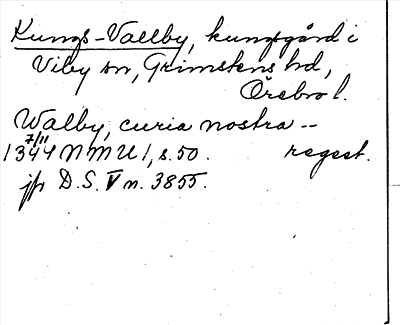 Kungs-Vallby, kungsgård i
Viby sn, Grimstens hd,
Örebro l.
Walby, curia nostra --
7/11
1344 NMU 1, s. 50. regest.
jfr D.S. V n. 3855.